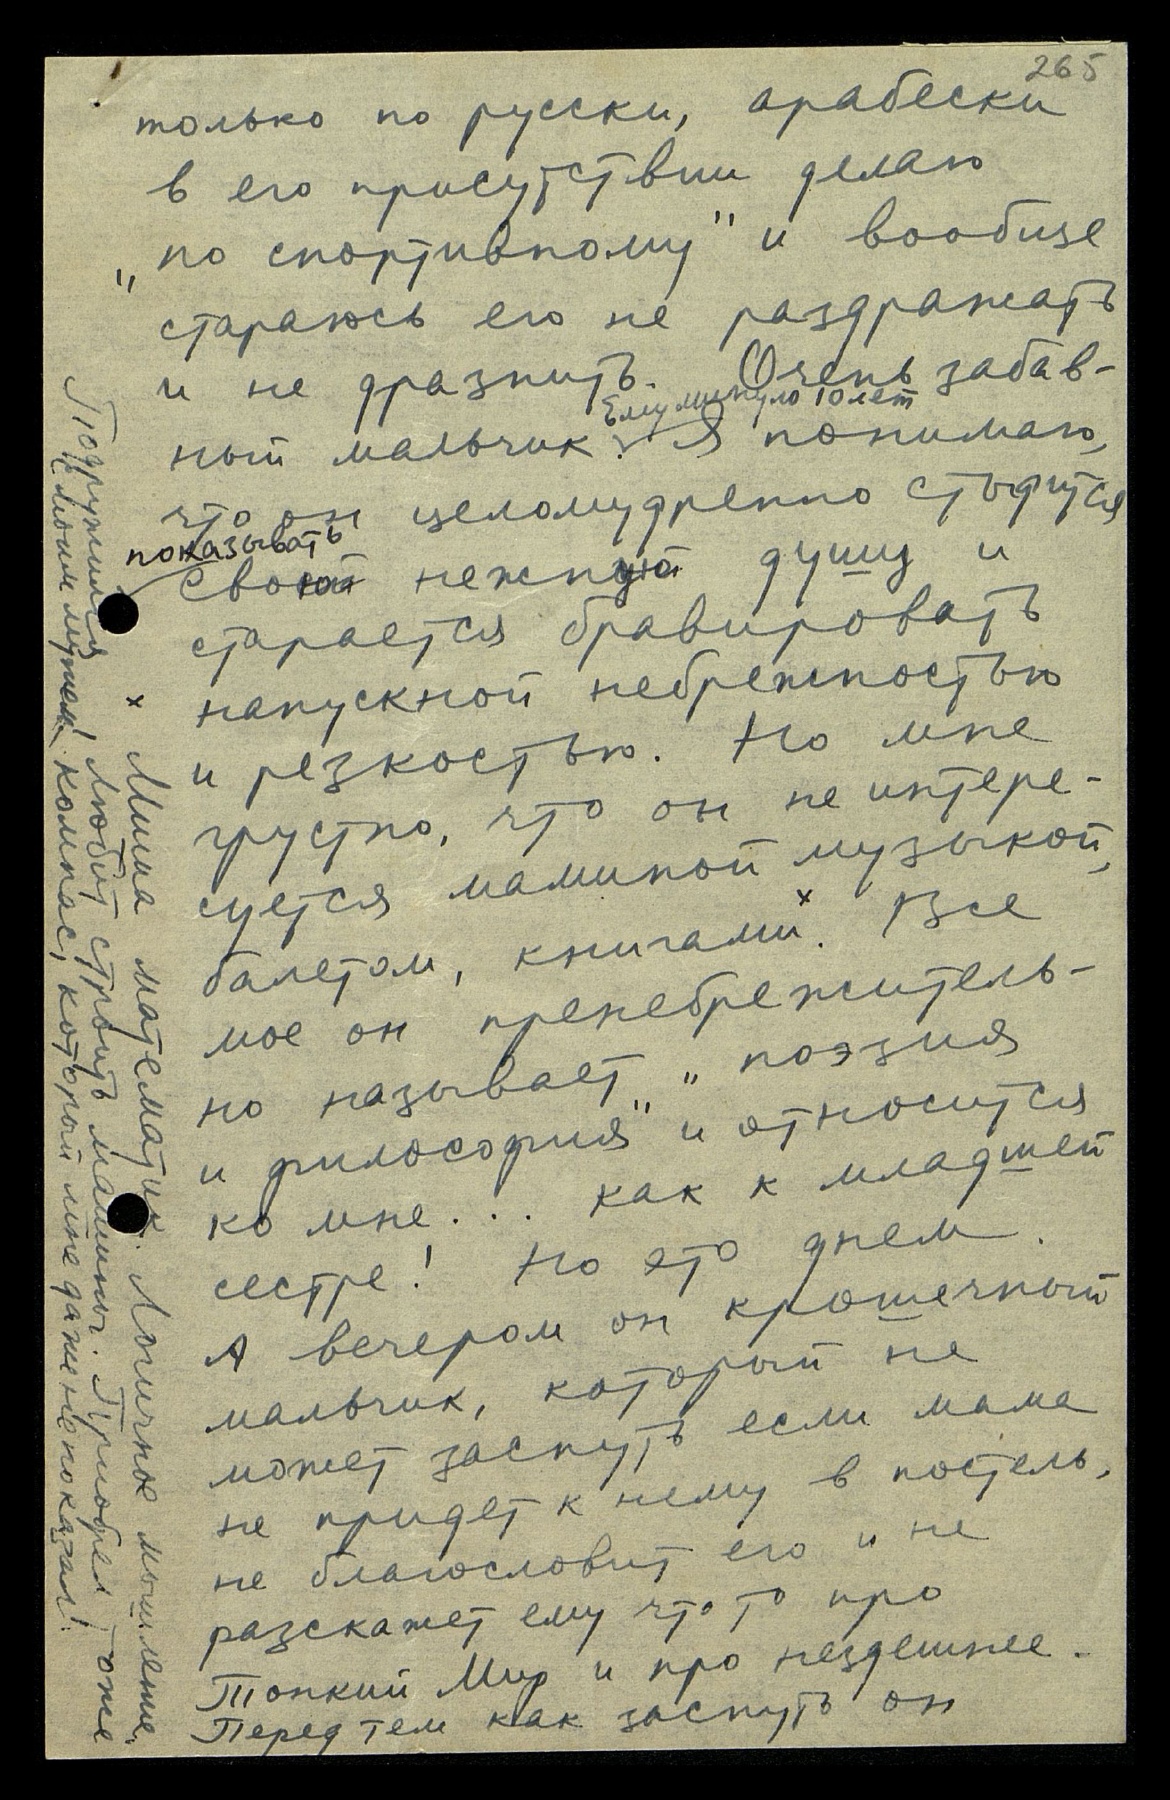 265
только по русски, арабески
в его присутствии делаю
„по спортивному" и вообще
стараюсь его не раздражать
и не дразнить. Очень забав-
Ему минуло 10 лет
ный мальчик. Я понимаю,
что он целомудренно стыдится
показывать
свою нежную душу и
старается бравировать
напускной небрежностью
и резкостью. Но мне
грустно, что он не интере-
суется маминой музыкой,
балетом, книгами.x Все
мое он пренебрежитель-
но называет „поэзия
и философия" и относится
ко мне... как к младшей
сестре! Но это днем.
А вечером он крошечный
мальчик, который не
может заснуть если мама
не придет к нему в постель,
не благословит его и не
разскажет ему что то про
Тонкий Мир и про нездешнее.
Перед тем как заснуть он
x Миша математик. Логичное мышление.
Подружился Любит строить машины. Приобрел тоже
с моим мужем! компас, который мне даже не показал!